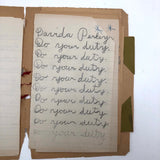 Do your duty.
Do your duty.
Do your duty.
Do your duty.
Do your duty.
Do your duty.
Do your duty.
Do your duty.
Do your duty.